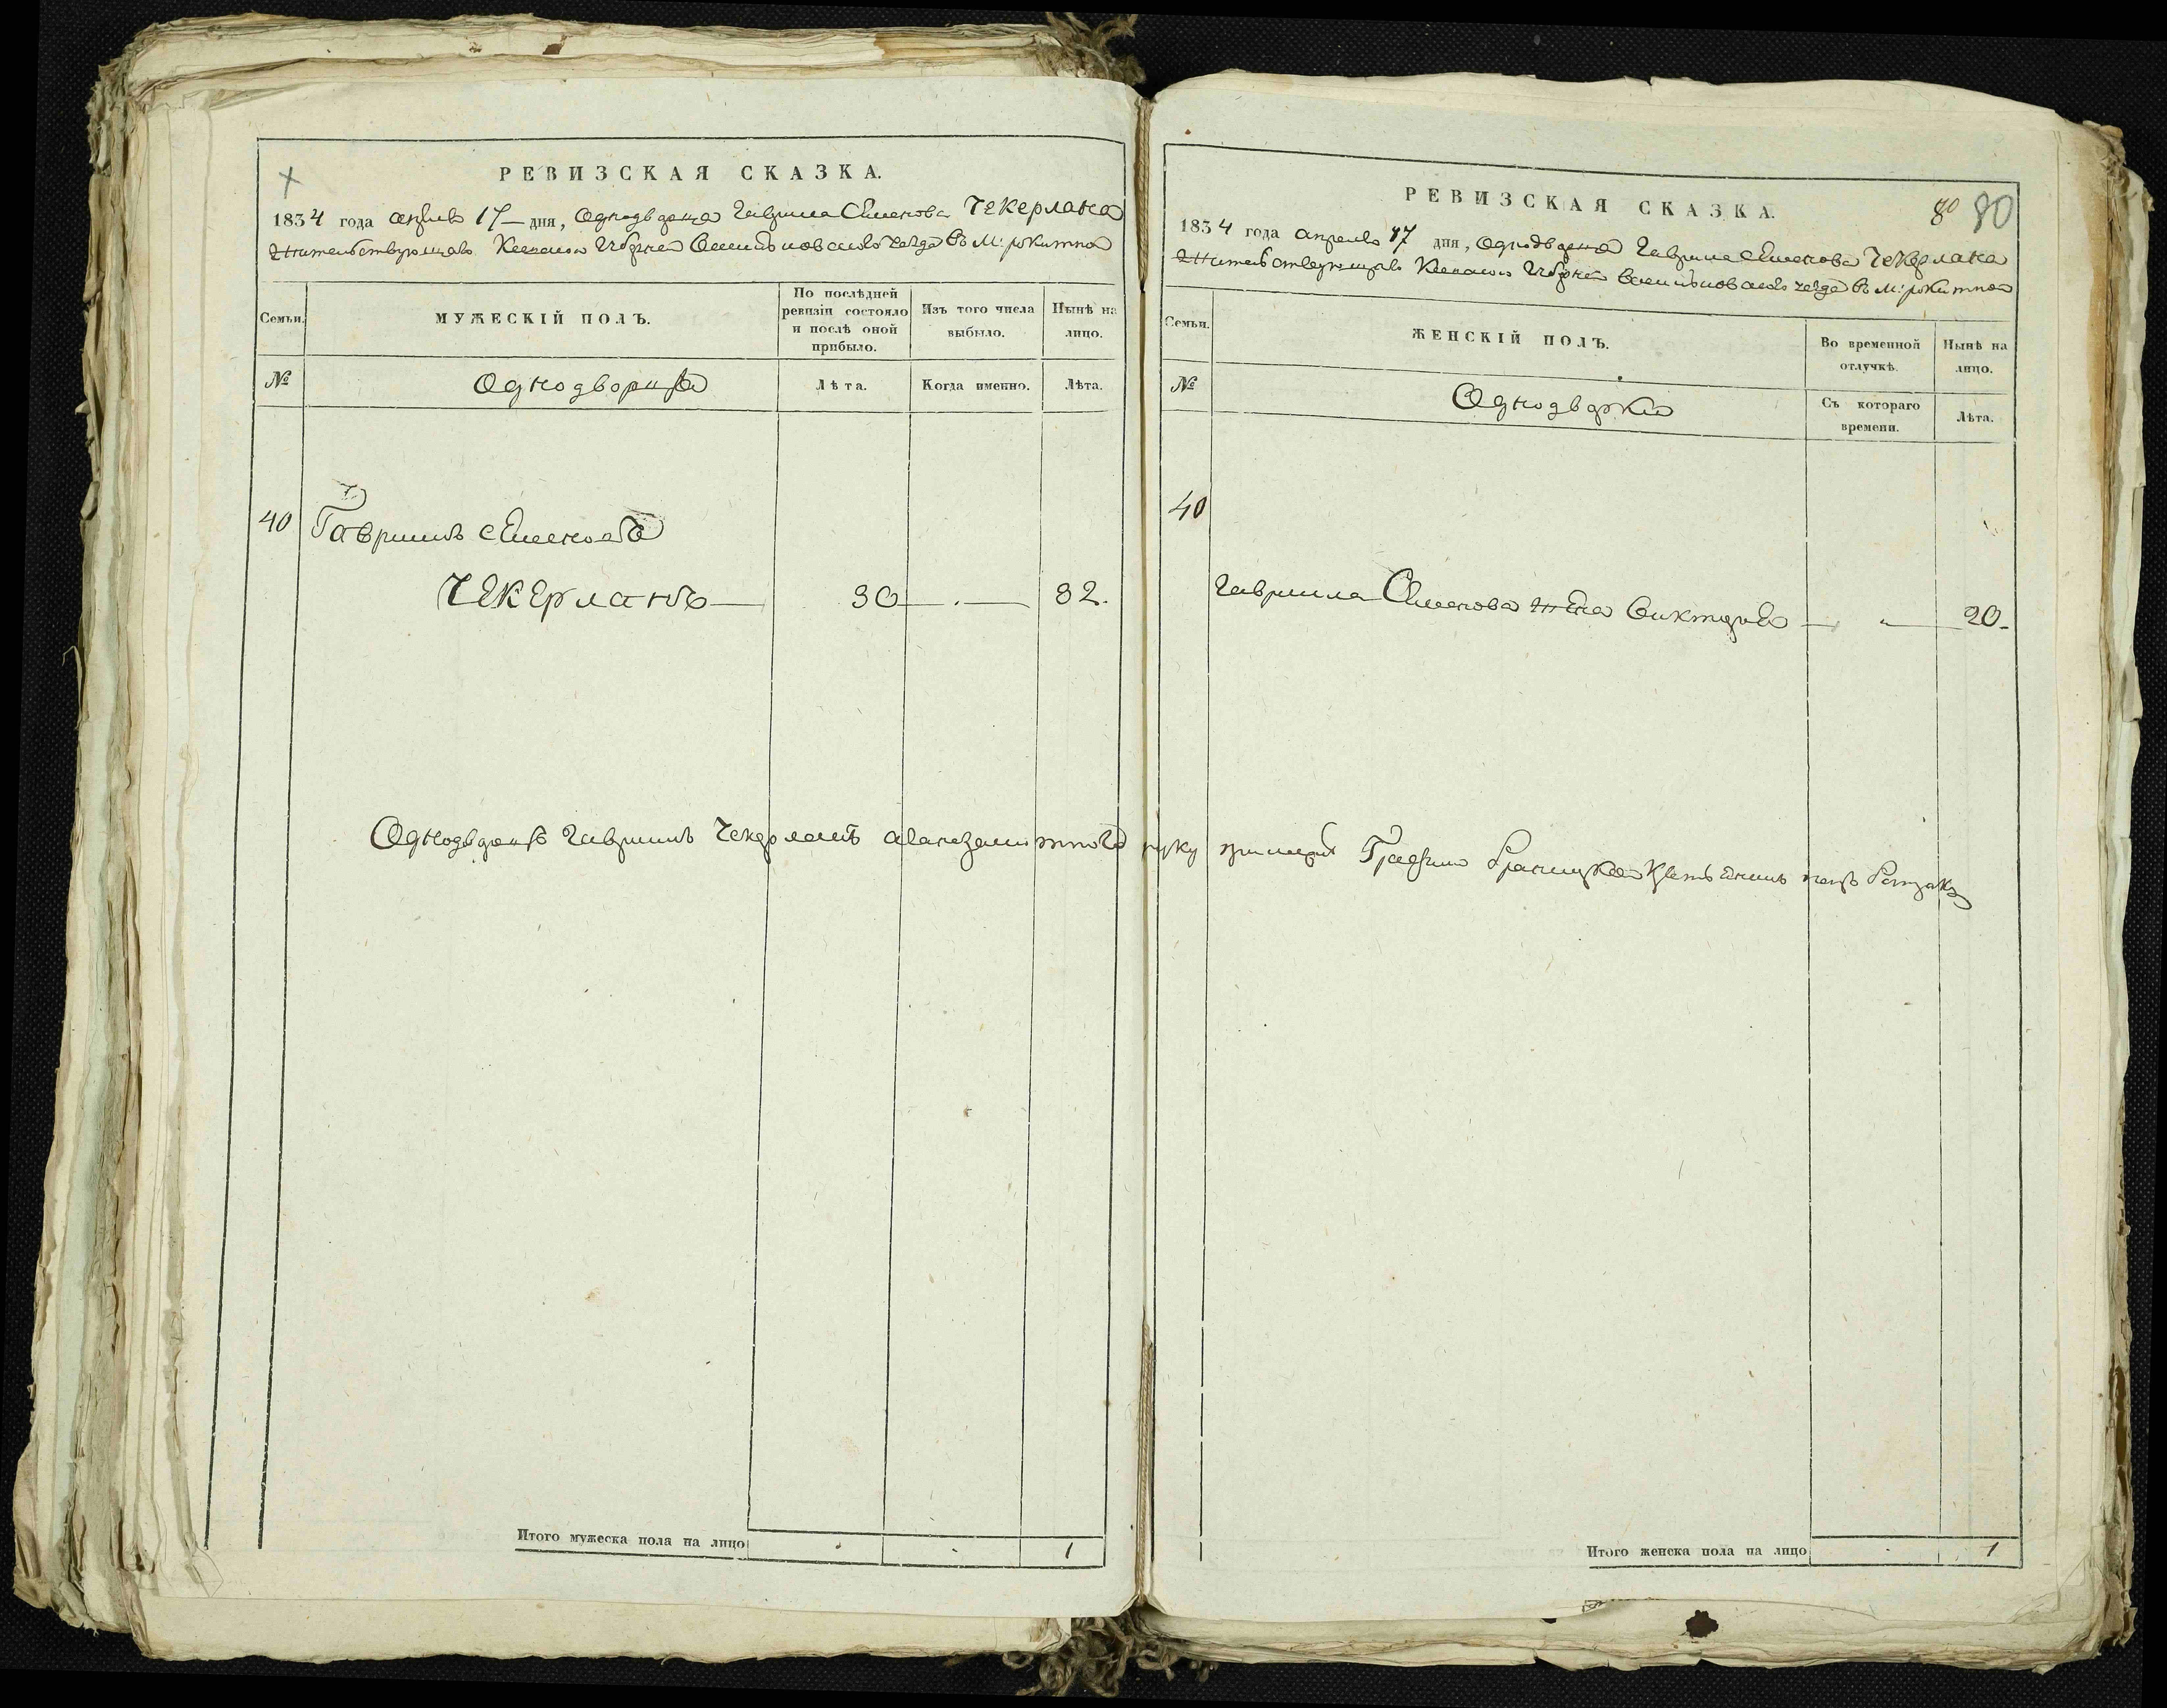 РЕВИЗСКАЯ СКАЗКА.
1834 года апреля 17 дня, однодворца Гаврила Семенова Чекерлана
Жительствующаго Киевской Губернии Васильковскаго уезда въ М: рокитной
Семьи.
МУЖЕСКІЙ ПОЛЪ.
По послѣдней ревизіи состояло и послѣ оной прибыло.
Изъ того числа выбыло.
Нынѣ на лицо.
№
Однодворцы
Лѣта.
Когда именно.
Лѣта.
40 Гаврилъ Семеновъ
Чекерланъ 30 32.
Однодворецъ Гаврилъ Чекерланъ а вместо его руку приложилъ
Итого мужеска пола на лицо 1
80 80
РЕВИЗСКАЯ СКАЗКА.
1834 года апреля 17 дня, однодворца Гаврила Семенова Чекерлана
Жительствующаго Киевской Губернии Васильковскаго уезда въ М: рокитной
Семьи.
ЖЕНСКІЙ ПОЛЪ.
Во временной отлучкѣ.
Нынѣ на лицо.
№
Однодворки
Съ котораго времени.
Лѣта.
40
Гаврила Семенова жена Виктория 20
Итого женска пола на лицо 1